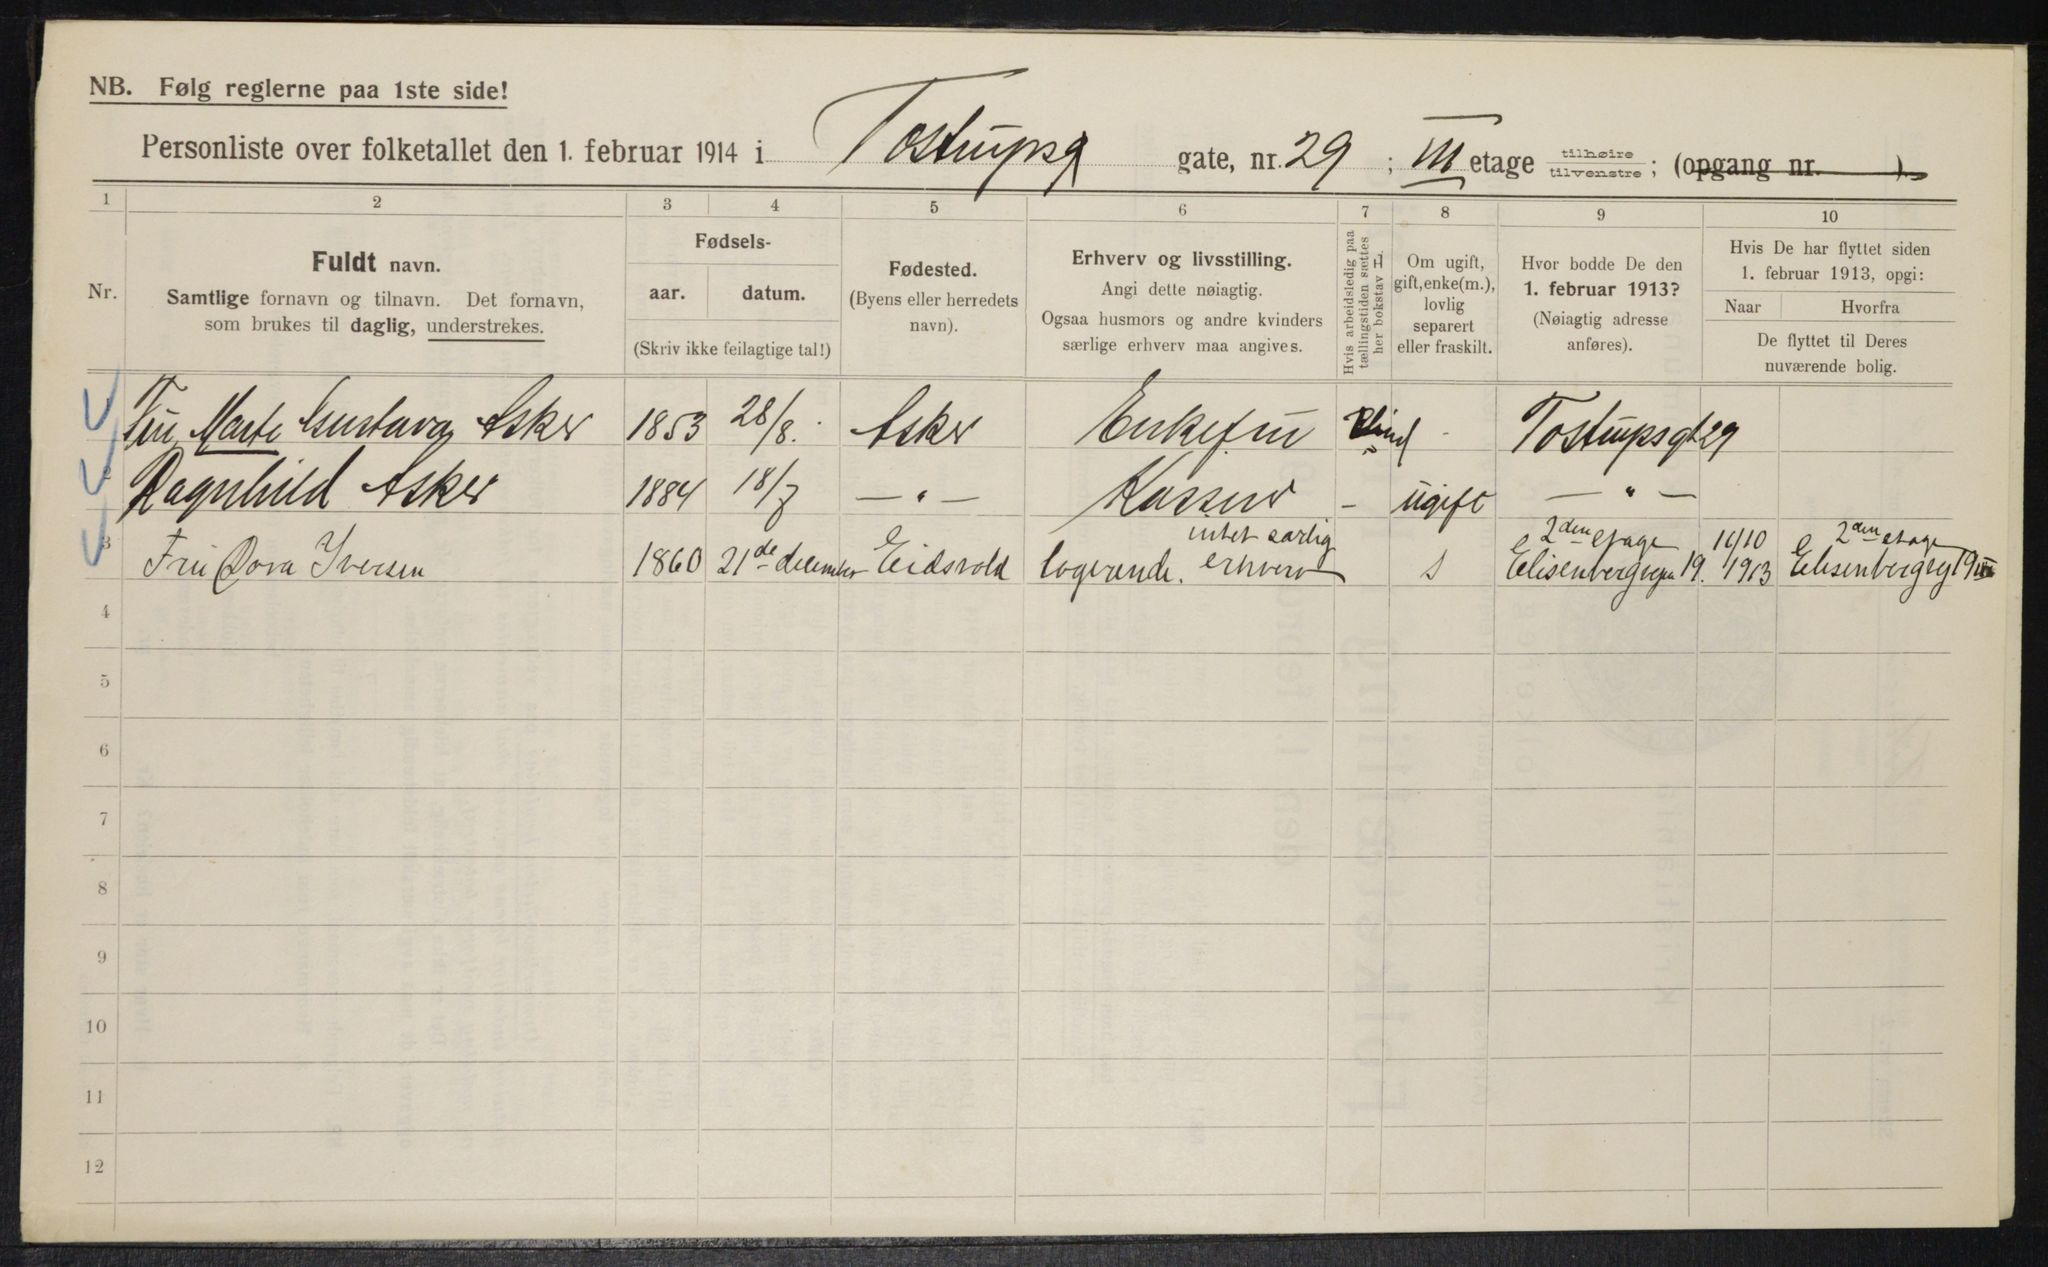 NB. Følg reglerne paa 1ste side!
Personliste over folketallet den 1. februar 1914 i Tostrupsg gate, nr. 29 ; III etage tilhøire tilvenstre ; (opgang nr. ).
1 2 3 4 5 6 7 8 9 10
Nr.
Fuldt navn.
Samtlige fornavn og tilnavn. Det fornavn,
som brukes til daglig, understrekes.
Fødsels-
aar. datum.
(Skriv ikke feilagtige tal!)
Fødested.
(Byens eller herredets
navn).
Erhverv og livsstilling.
Angi dette nøiagtig.
Ogsaa husmors og andre kvinders
særlige erhverv maa angives.
Hvis arbeidsledig paa
tællingstiden sættes
her bokstav L.
Om ugift,
gift, enke(m.),
lovlig
separert
eller fraskilt.
Hvor bodde De den
1. februar 1913?
(Nøiagtig adresse
anføres).
Hvis De har flyttet siden
1. februar 1913, opgi:
Naar Hvorfra
De flyttet til Deres
nuværende bolig.
1 Fru Marte Gustava Asker 1853 28/8. Asker Enkefru - Tostrupsgt 29
2 Ragnhild Asker 1884 18/7 — " — Kasserer - ugift — " —
3 Fru Dora Iversen 1860 21de december Eidsvold logerende. intet særlig erhverv s 2den etage Elisenbergvejen 19. 11/10 1913 2den etage Elisenbergvej 19
4
5
6
7
8
9
10
11
12